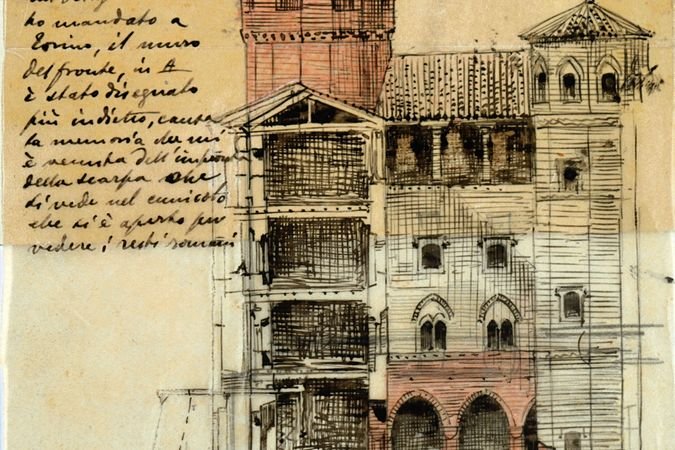 ho mandato a
Torino, il muro
del fronte, in A
è stato disegnato
più indietro, causa
la memoria che mi
è venuta dell'impronta
della scarpa che
si vede nel cunicolo
che si è aperto per
vedere i resti romani